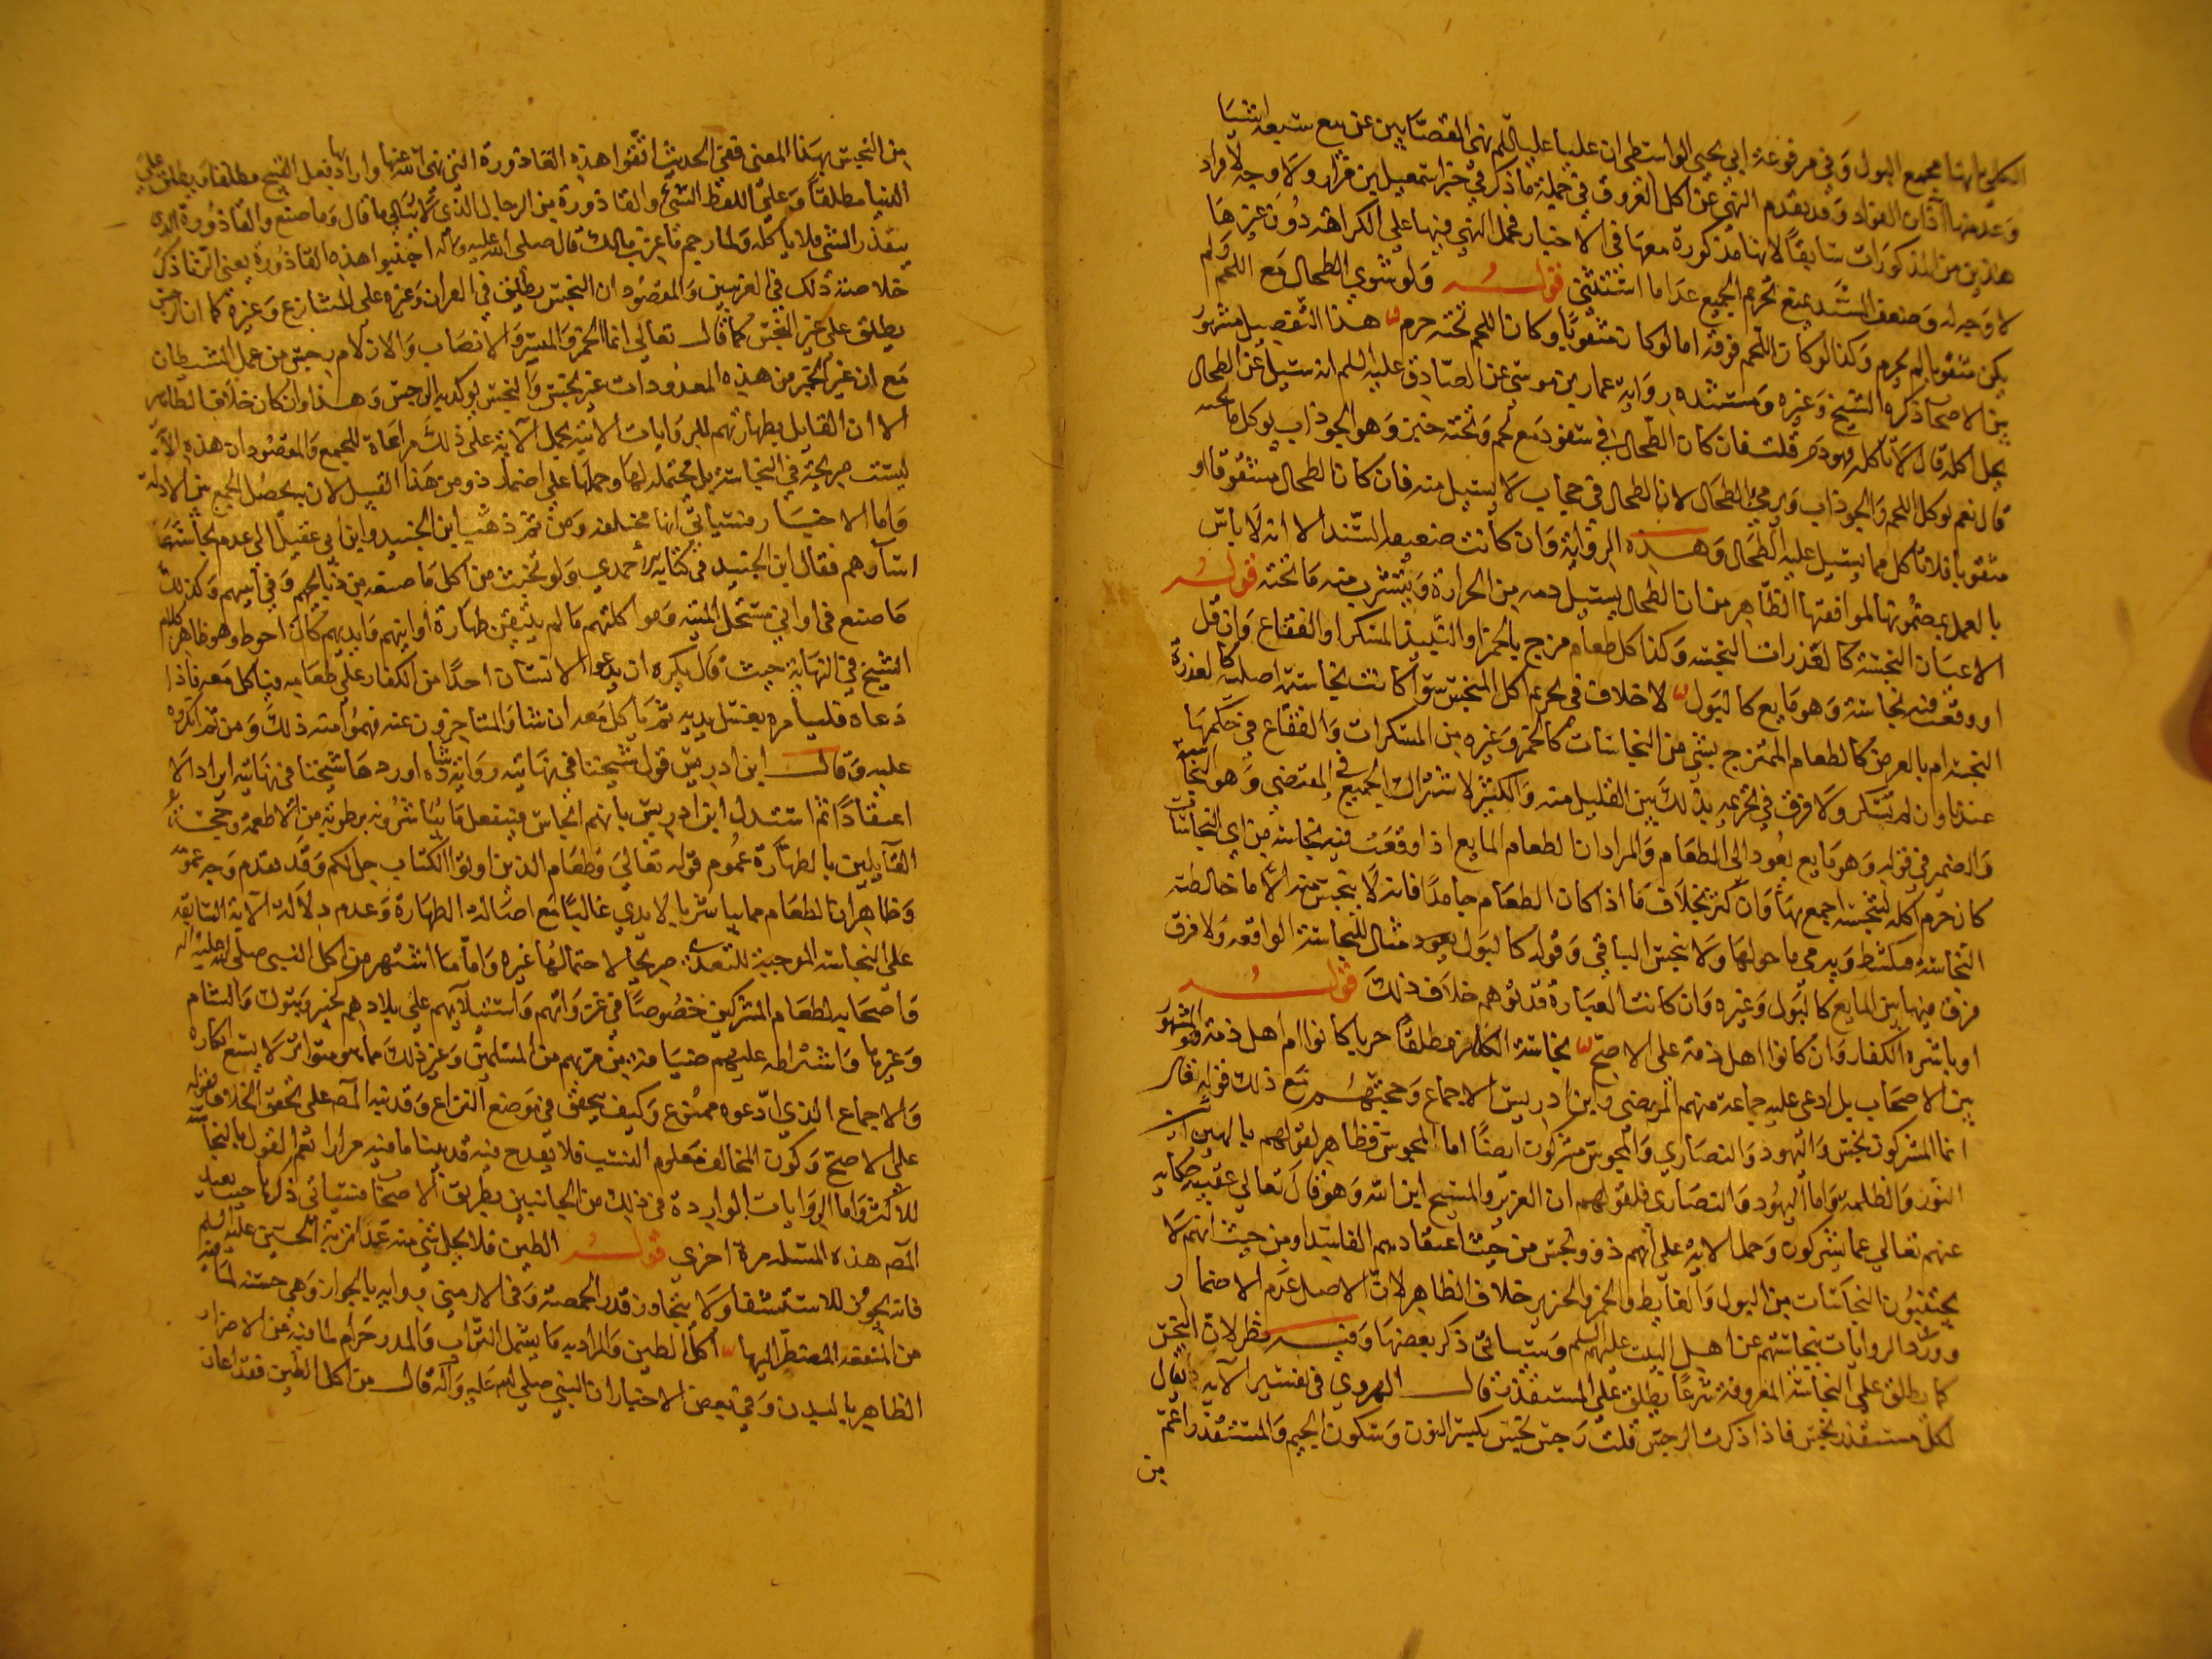 الكلى بانها مجمع البول وفي مرفوعة ابي يحيى الواسطي ان عليا عليه السلم نهى القصابين عن بيع سبعة اشيا
وعد منها آذان الفؤاد وقد تقدم النهي عن اكل العروق في جملة ما ذكر في خبر اسمعيل بن مرار ولا وجه لافراد
هذين من المذكورات سابقا لانها مذكورة معها في الاخبار فحمل النهي فيها على الكراهة دون غيرها
لا وجه له وضعف السند يمنع تحريم الجميع عدا ما استثني قوله ولو شوي الطحال مع اللحم ولم
يكن مثقوبا لم يحرم وكذا لو كان اللحم فوقه اما لو كان مثقوبا وكان اللحم تحته حرم هذا التفصيل مشهور
بين الاصحاب ذكره الشيخ وغيره ومستنده رواية عمار بن موسى عن الصادق عليه السلم انه سئيل عن الطحال
يحل اكله قال لا تاكله فهو دم قلت فان كان الطحال في سفود مع لحم وتحته خبز وهو الجوذاب يوكل ما تحته
قال نعم يوكل اللحم والجوذاب ويرمى الطحال لان الطحال في حجاب لا يسيل منه فان كان الطحال مشقوقا او
مثقوبا فلا تاكل مما يسيل عليه الطحال وهذه الرواية وان كانت ضعيفه السند الا انه لا باس
بالعمل بمضمونها لموافقتها الظاهر من ان الطحال يسيل دمه من الحرارة ويتشرب منه ما تحته قوله
الاعيان النجسة كالعذرات النجسه وكذا كل طعام مزج بالخمر او النبيذ المسكر او الفقاع وان قل
او وقعت فيه نجاسة وهو مايع كالبول لا خلاف في تحريم اكل النجس سوا كانت نجاسته اصلية كالعذرة
النجسة ام بالعرض كالطعام الممتزج بشي من النجاسات كالخمر وغيره من المسكرات والفقاع في حكمها
عندنا وان لم يسكر ولا فرق في تحريمه بذلك بين القليل منه والكثير لاشتراك الجميع في المقتضي وهو النجاسة
والضمير في قوله وهو مايع يعود الى الطعام والمراد ان الطعام المايع اذا وقعت فيه نجاسة من اي النجاسات
كان حرم اكله لنجسه اجمع بها وان كثر بخلاف ما اذا كان الطعام جامدا فانه لا ينجس منه الا ما خالطته
النجاسة فيكشط ويرمى ما حولها ولا ينجس الباقي وقوله كالبول يعود مثال للنجاسة الواقعه ولا فرق
فرق فيها بين المايع كالبول وغيره وان كانت العبارة قد توهم خلاف ذلك قوله
او باشره الكفار وان كانوا اهل ذمة على الاصح نجاسة الكافر مطلقا حربا كانوا ام اهل ذمة هو المشهور
بين الاصحاب بل ادعى عليه جماعة منهم المرتضى وابن ادريس الاجماع وحجتهم مع ذلك قوله تعالى
انما المشركون نجس واليهود والنصارى والمجوس مشركون ايضا اما المجوس فظاهر لقولهم بالهين اثنين
النور والظلمة واما اليهود والنصارى فلقولهم ان العزير والمسيح ابن الله وهو قال تعالى عقيب حكايه
عنهم تعالى عما يشركون وحمل الايه على انهم ذوو نجس من حيث اعتقادهم الفاسد او من حيث انهم لا
يجتنبون النجاسات من البول والغايط والخمر والخنزير خلاف الظاهر لان الاصل عدم الاضمار
وورد الروايات بنجاستهم عن اهل البيت عليهم السلم وسياتي ذكر بعضها وفيه نظر لان النجس
كما يطلق على النجاسة المعروفة شرعا يطلق على المستقذر قال الهروي في تفسير الآية يقال
لكل مستقذر نجس فاذا ذكرت الرجس قلت رجس نجس بكسر النون وسكون الجيم والمستقذر اعم
من
من النجس بهذا المعنى ففي الحديث اتقوا هذه القاذورة التي نهى الله عنها واراد بها فعل القبيح مطلقا ويطلق على
الدنيا مطلقا وعلى اللفظ السيئ والقاذورة من الرجال الذي لا يبالي ما قال وما صنع والقاذورة الذي
يتقذر الشي فلا ياكله ولما رجم ماعز بن مالك قال صلى الله عليه واله اجتنبوا هذه القاذورة يعني الزنا ذكر
خلاصة ذلك في الغريبين والمقصود ان النجس يطلق في القران وغيره على المتنازع وغيره كما ان الرجس
يطلق على غير النجس كما قال تعالى انما الخمر والميسر والانصاب والازلام رجس من عمل الشيطان
مع ان غير الخمر من هذه المعدودات غير نجس والنجس يوكد به الرجس وهذا وان كان خلاف الظاهر
الا ان القايل بطهارتهم للروايات الاتية يحمل الآية على ذلك مراعاة للجمع والمقصود ان هذه الآية
ليست صريحة في النجاسة بل محتملة لها وحملها على اضمار ذو من هذا القبيل لان به يحصل الجمع بين الادلة
واما الاخبار فسياتي انها مختلفه ومن ثم ذهب ابن الجنيد وابن ابي عقيل الى عدم نجاسة
اسآرهم فقال ابن الجنيد في كتابه الاحمدي ولو تجنب من اكل ما صنعه من ذبايحهم وفي آنيتهم وكذلك
ما صنع في اواني مستحل الميته ومواكلتهم ما لم يتيقن طهارة اوانيهم وايديهم كان احوط وهو ظاهر كلام
الشيخ في النهاية حيث قال يكره ان يدعو الانسان احدا من الكفار على طعامه فياكل معه فاذا
دعاه فليامره بغسل يديه ثم ياكل معه ان شا والمتاخرون عنه فهموا منه ذلك ومن ثم انكروه
عليه وقال ابن ادريس قول شيخنا في نهايته رواية شاذه اوردها شيخنا في نهايته ايراد الا
اعتقادا ثم استدل ابن ادريس بانهم انجاس فينفعل ما يباشرونه برطوبة من الاطعمة وحجة
القايلين بالطهارة عموم قوله تعالى وطعام الذين اوتوا الكتاب حل لكم وقد تقدم وجه عمومه
وظاهر ان الطعام مما يباشر بالايدي غالبا مع اصالة الطهارة وعدم دلالة الآية السابقه
على النجاسة الموجبة للتعدي صريحا لاحتمالها غيره واما ما اشتهر من اكل النبي صلى الله عليه واله
واصحابه لطعام المشركين خصوصا في غزواتهم واستيلائهم على بلادهم كخيبر وتبوك والشام
وغيرها واشتراطه عليهم ضيافة من مر بهم من المسلمين وغير ذلك مما هو متواتر لا يسع انكاره
والاجماع الذي ادعوه ممنوع وكيف يتحقق في موضع النزاع وقد نبه المصه على تحقق الخلاف بقوله
على الاصح وكون المخالف معلوم النسب فلا يقدح فيه قد بينا ما فيه مرارا نعم القول بالنجاسة
للاكثر واما الروايات الواردة في ذلك من الجانبين بطريق الاصحاب فسياتي ذكرها حيث يعيد
المصه هذه المسئلة مرة اخرى قوله الطين فلا يحل شي منه عدا تربة الحسين عليه السلم
فانه يجوز للاستشفا ولا يتجاوز قدر الحمصة وفي الارمني رواية بالجواز وهي حسنه لما فيه
من المنفعة المضطر اليها اكل الطين والمراد به ما يشمل التراب والمدر حرام لما فيه من الاضرار
الظاهر بالبدن وفي بعض الاخبار ان النبي صلى الله عليه وآله قال من اكل الطين فقد اعان